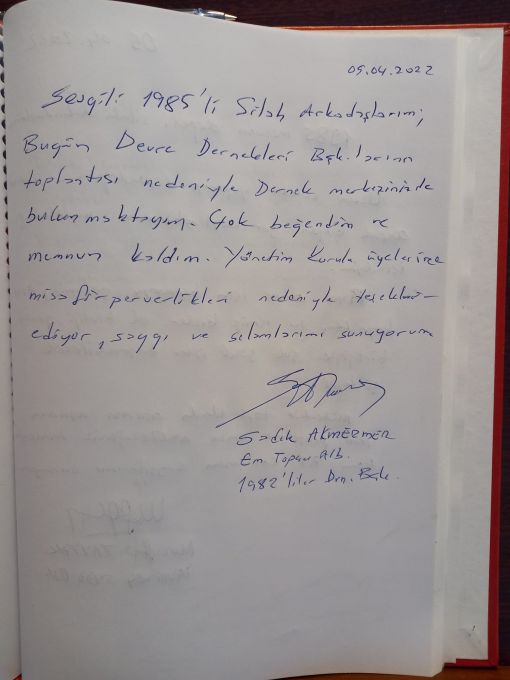 05.04.2022
Sevgili 1985'li Silah Arkadaşlarım;
Bugün Devre Dernekleri Bşk.larının
toplantısı nedeniyle Dernek merkezinizde
bulunmaktayım. Çok beğendim ve
memnun kaldım. Yönetim Kurulu üyelerine
misafirperverlikleri nedeniyle teşekkür
ediyor, saygı ve selamlarımı sunuyorum
Sadık AKMERMER
Em. Topçu Alb.
1982'liler Drn. Bşk.